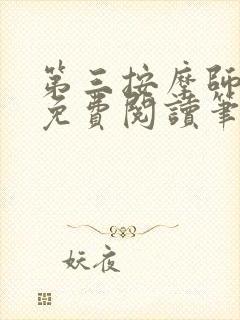 第三按摩師
免費閱讀筆
妖夜